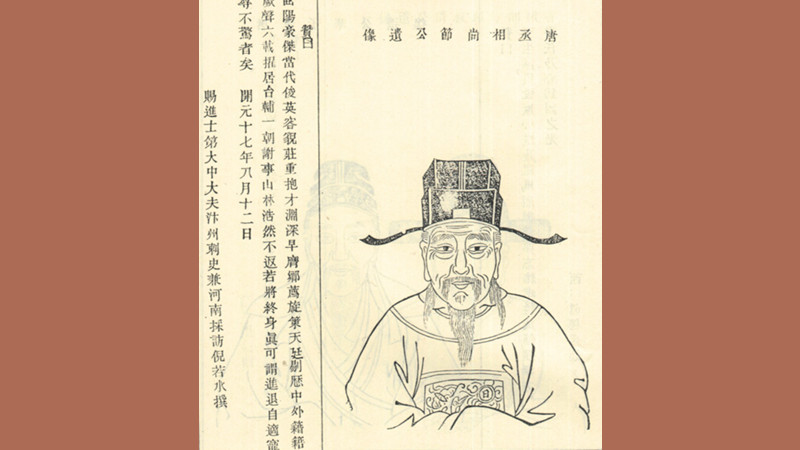 唐丞相尚節公遺像
贊曰
陽豪傑當代後英容覩莊重抱才淵深早膺鄉薦旋策天廷剔歷中外藉籍
厥聲六載擢居台輔一朝謝事山林浩然不返若將終身眞可謂進退自適寵
辱不驚者矣 開元十七年八月十二日
賜進士第大中大夫汴州刺史兼河南採訪倪若水撰